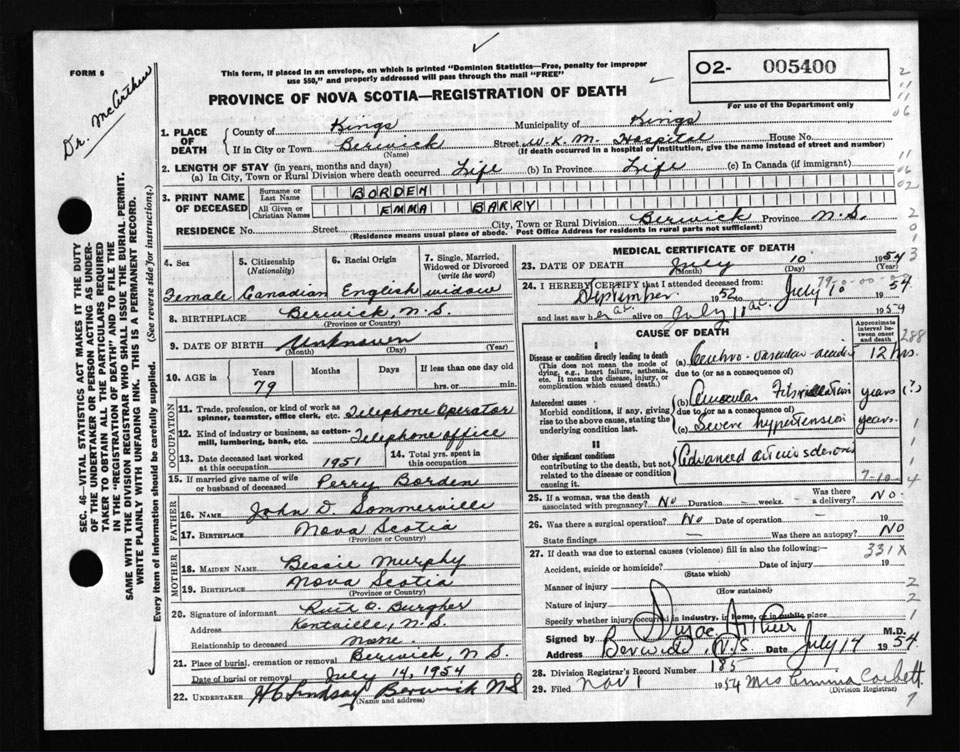 FORM 6
Dr. McArthur
This form, if placed in an envelope, on which is printed "Dominion Statistics—Free, penalty for improper
use $50," and properly addressed will pass through the mail "FREE"
02- 005400
For use of the Department only
PROVINCE OF NOVA SCOTIA—REGISTRATION OF DEATH
1. PLACE OF DEATH { County of Kings Municipality of Kings
If in City or Town Berwick Street W.K.M. Hospital House No.
(Name) (If death occurred in a hospital or institution, give the name instead of street and number)
2. LENGTH OF STAY (in years, months and days)
(a) In City, Town or Rural Division where death occurred Life (b) In Province Life (c) In Canada (if immigrant)
3. PRINT NAME OF DECEASED { Surname or Last Name BORDEN
All Given or Christian Names EMMA BARRY
RESIDENCE No. Street City, Town or Rural Division Berwick Province N.S.
(Residence means usual place of abode. Post Office Address for residents in rural parts not sufficient)
SEC. 46—VITAL STATISTICS ACT MAKES IT THE DUTY
OF THE UNDERTAKER OR PERSON ACTING AS UNDER-
TAKER TO OBTAIN ALL THE PARTICULARS REQUIRED
IN THE "REGISTRATION OF DEATH" AND TO FILE THE
SAME WITH THE DIVISION REGISTRAR WHO SHALL ISSUE THE BURIAL PERMIT.
WRITE PLAINLY WITH UNFADING INK. THIS IS A PERMANENT RECORD.
Every item of information should be carefully supplied. (See reverse side for instructions.)
4. Sex 5. Citizenship (Nationality) 6. Racial Origin 7. Single, Married, Widowed or Divorced (write the word)
Female Canadian English widow
8. BIRTHPLACE Berwick, N.S.
(Province or Country)
9. DATE OF BIRTH Unknown
(Month) (Day) (Year)
10. AGE in { Years Months Days If less than one day old
79 hrs. or min.
OCCUPATION
11. Trade, profession, or kind of work as
spinner, teamster, office clerk, etc. Telephone Operator
12. Kind of industry or business, as cotton-
mill, lumbering, bank, etc. Telephone office
13. Date deceased last worked
at this occupation 1951
14. Total yrs. spent in
this occupation
15. If married give name of wife
or husband of deceased Perry Borden
FATHER
16. NAME John D. Sommerville
17. BIRTHPLACE Nova Scotia
(Province or Country)
MOTHER
18. MAIDEN NAME Bessie Murphy
19. BIRTHPLACE Nova Scotia
(Province or Country)
20. Signature of informant Ruth O. Burgher
Address Kentville, N.S.
Relationship to deceased none.
21. Place of burial, cremation or removal Berwick, N.S.
Date of burial or removal July 14, 1954
22. UNDERTAKER H C Lindsay Berwick N S
(Name and address)
MEDICAL CERTIFICATE OF DEATH
23. DATE OF DEATH July 10 1954
(Month) (Day) (Year)
24. I HEREBY CERTIFY that I attended deceased from:
September 1952 to July 10 1954
and last saw her alive on July 11 1954
CAUSE OF DEATH
Approximate interval between onset and death
I
Disease or condition directly leading to death
(This does not mean the mode of
dying, e.g., heart failure, asthenia,
etc. It means the disease, injury, or
complication which caused death.)
(a) Cerebro-vascular accident 12 hrs.
due to (or as a consequence of)
Antecedent causes
Morbid conditions, if any, giving
rise to the above cause, stating the
underlying condition last.
(b) Auricular Fibrillation years (?)
due to (or as a consequence of)
(c) Severe hypertension years.
II
Other significant conditions
contributing to the death, but not
related to the disease or condition
causing it
Advanced arteriosclerosis
7-10-4
25. If a woman, was the death
associated with pregnancy? No Duration — weeks. — Was there a delivery? NO
26. Was there a surgical operation? No Date of operation — 19
State findings — Was there an autopsy? NO
27. If death was due to external causes (violence) fill in also the following:— 331X
Accident, suicide or homicide? Date of injury 19
(State which)
Manner of injury
(How sustained)
Nature of injury
Specify whether injury occurred in industry, in home, or in public place
Signed by M.D.
Address Berwick, N.S. Date July 14 1954
28. Division Registrar's Record Number 185
29. Filed Nov 1 1954 Mrs Emma Corbett
(Division Registrar)